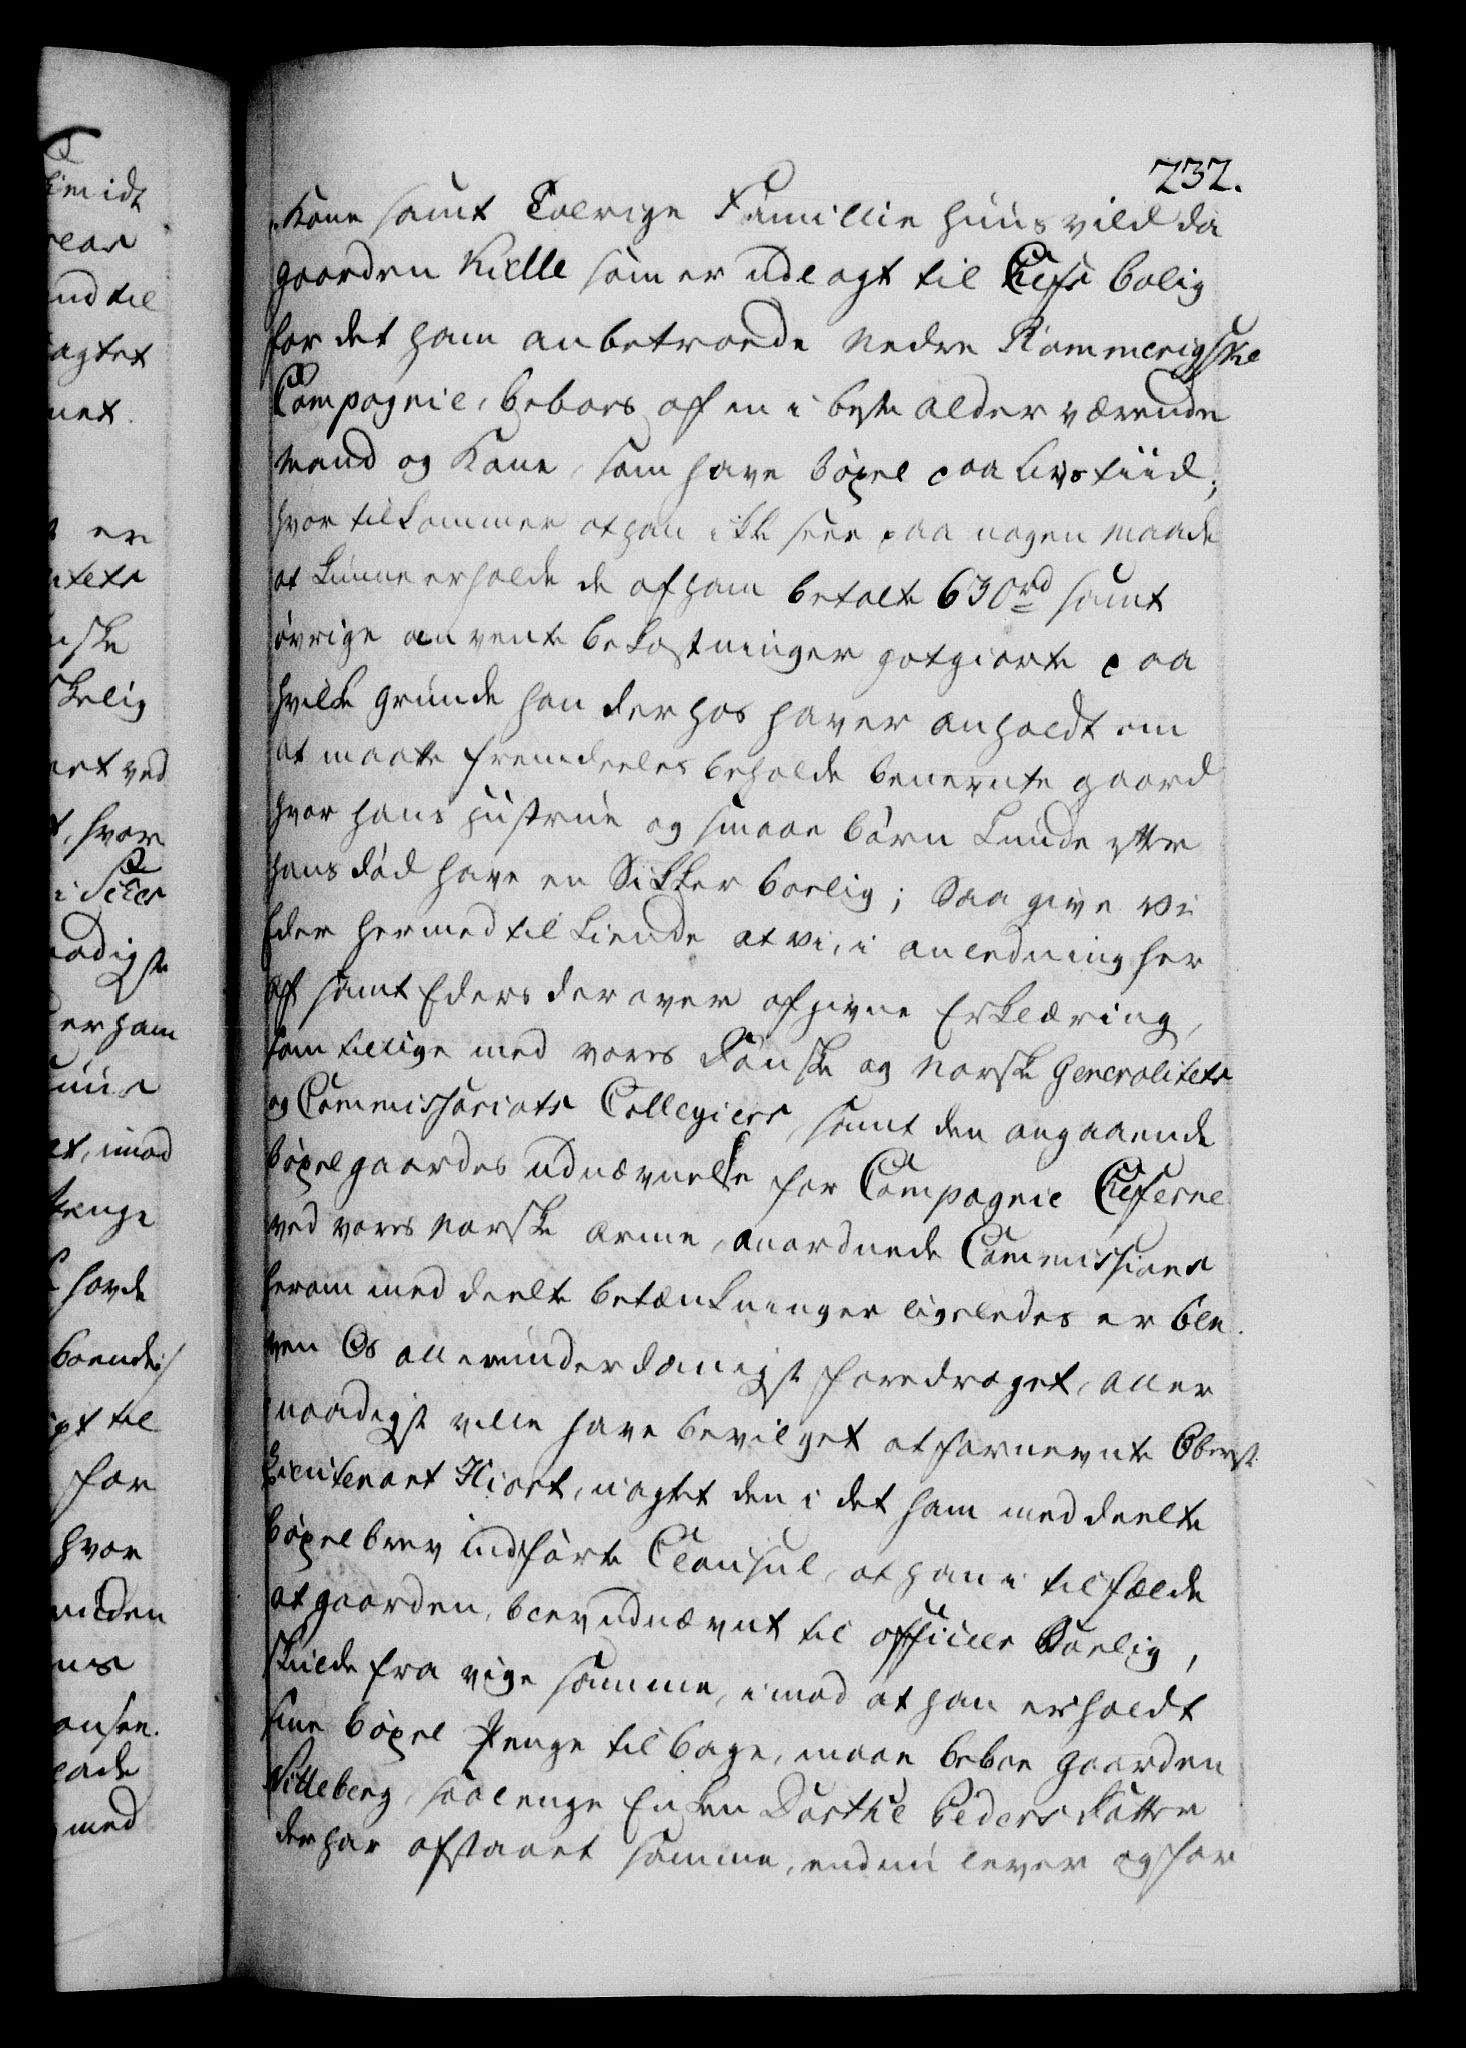 232.
Kone samt Talrige Familie huusvild da
gaarden Kielle som er udlagt til Chefs bolig
for det ham anbetroede Nedre Rommerigske
Compagnie, beboes af en i beste alder værende
Mand og Kone, som have böxel paa Livs tiid;
hvor til kommer at han ikke seer paa nogen maade
at kunne erholde de af ham betalte 630 rd samt
övrige anvente bekostninger gotgiorte paa
hvilke grunde han derhos haver anholdt om
at maatte fremdeeles beholde benevnte gaard
hvor hans hustrue og smaae börn kunde efter
hans död have en Sikker boelig; Saa give vi
Eder hermed til kiende at vi, i anledning her
af samt Eders derover afgivne Erklæring,
som tillige med vores Danske og Norske Generalitets
og Commissariats Collegiers, samt den angaaende
böxelgaardes udnævnelse for Compagnie Cheferne
ved vores Norske Armee, anordnede Commissions
herom meddeelte betænkninger ligeledes er ble
ven Os allerunderdanigst foredraget, aller
naadigst ville have bevilget at fornevnte Oberst
Lieutenant Hiort, uagtet den i det ham meddeelte
böxelbrev indförte Clausul, at han i tilfælde
at gaarden, blev udnævnt til officeer Boelig,
skulde fra vige samme, imod at han erholdt
sine böxel Penge tilbage, maae beboe gaarden
Nitteberg, saalenge Enken Dorthe Peders datter
der har afstaaet samme, endnu lever og for